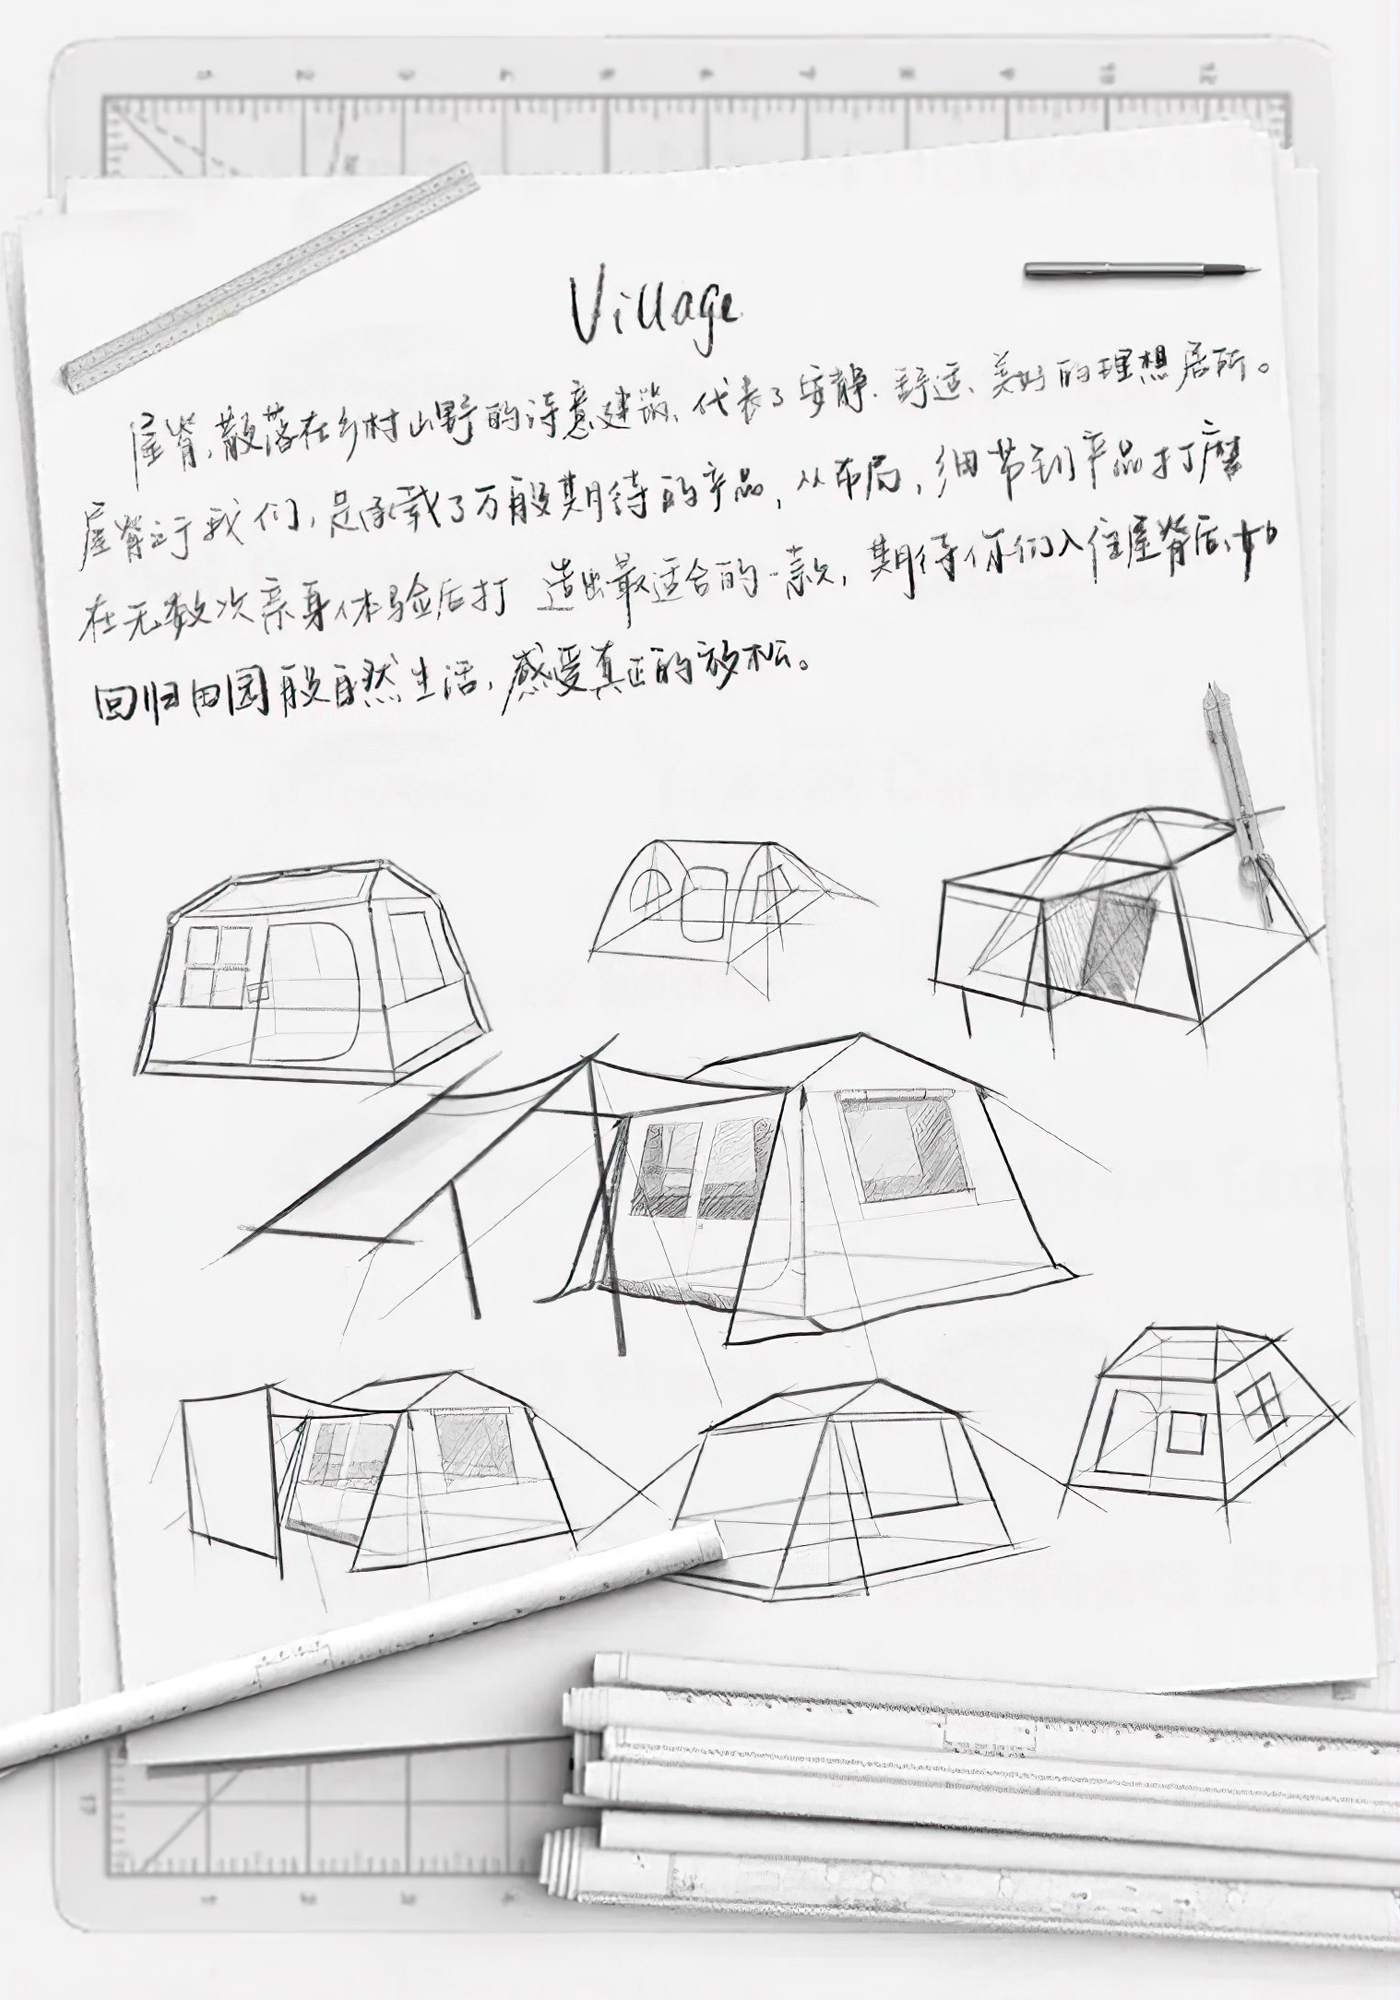 Village
屋脊,散落在乡村山野的诗意建筑、代表了安静.舒适、美好的理想居所。
屋脊之于我们,是承载了万般期待的产品,从布局,细节到产品打磨
在无数次亲身体验后打造出最适合的一款,期待你们入住屋脊后、如
回归田园般自然生活,感受真正的放松。